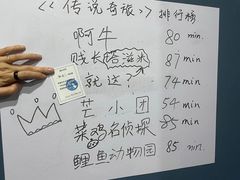 <<传说奇旅>> 排行榜
啊牛 80 min.
贱长塔滋米 87 min
就送? 74 min
芒小团 54 min
菜鸡名侦探 85 min
鲤鱼动物园 85 min.